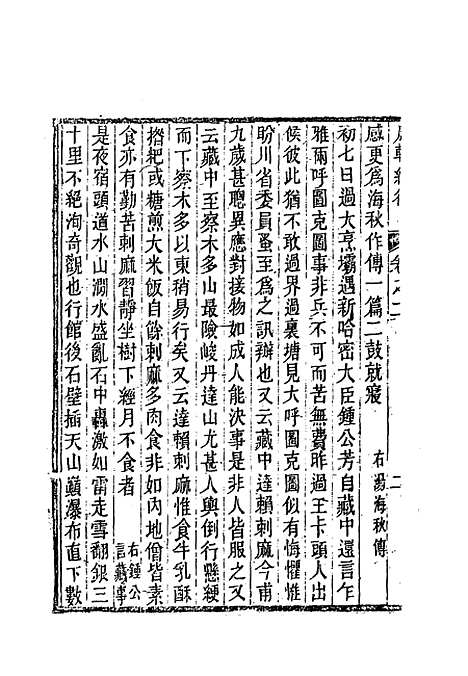 康輶紀行 卷之二 二
感更為海秋作傳一篇二鼓就寢 右湯海秋傳
初七日過大烹壩遇新哈密大臣鍾公芳自藏中還言乍
雅兩呼圖克圖事非兵不可而苦無費昨過王卡頭人出
候彼此猶不敢過界過裏塘見大呼圖克圖似有悔懼惟
盼川省委員蚤至為之訊辯也又云藏中達賴刺麻今甫
九歲甚聰異應對接物如成人能決事是非人皆服之又
云藏中至察木多山最險峻丹達山尤甚人輿倒行懸綆
而下察木多以東稍易行矣又云達賴刺麻惟食牛乳酥
搭粑或糖煎大米飯自餘刺麻多肉食非如內地僧皆素
食亦有勤苦刺麻習靜坐樹下經月不食者 右鍾公言藏事
是夜宿頭道水山澗水盛亂石中轟激如雷走雪翻銀三
十里不絕洵奇觀也行館後石壁插天山巔瀑布直下數